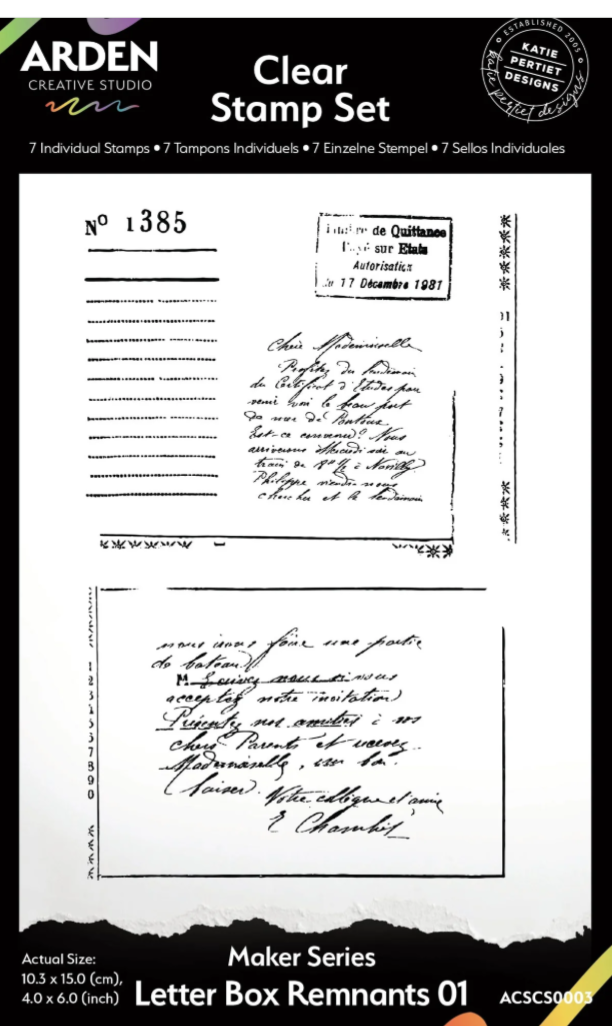 ARDEN
CREATIVE STUDIO
Clear
Stamp Set
ESTABLISHED 2005
KATIE
PERTIET
DESIGNS
katie pertiet designs
7 Individual Stamps • 7 Tampons Individuels • 7 Einzelne Stempel • 7 Sellos Individuales
Nº 1385
de Quittance
sur Etats
Autorisation
du 17 Décembre 1981
Chère Mademoiselle
Profitez du lendemain
du Certificat d'Etudes pour
venir voir le beau port
de mer de
Est-ce convenu? Nous
arriverons Mercredi soir au
train de 8h ½ à
Philippe viendra nous
chercher et le lendemain
nous irons faire une partie
de bateau
M. nous si vous
acceptez notre invitation
Présentez nos amitiés à vos
chers Parents et recevez
Mademoiselle, un bon
baiser.
Votre collègue et amie
E
1
2
3
4
5
3
7
8
9
0
Actual Size:
10.3 x 15.0 (cm),
4.0 x 6.0 (inch)
Maker Series
Letter Box Remnants 01
ACSCS0003